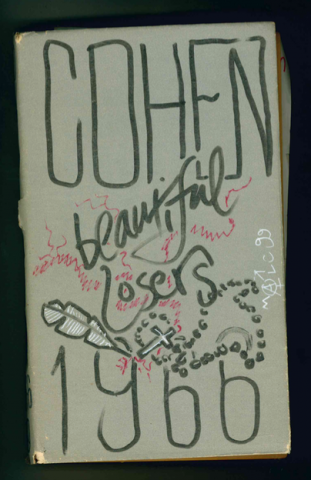 COHEN
beautiful
losers
1966